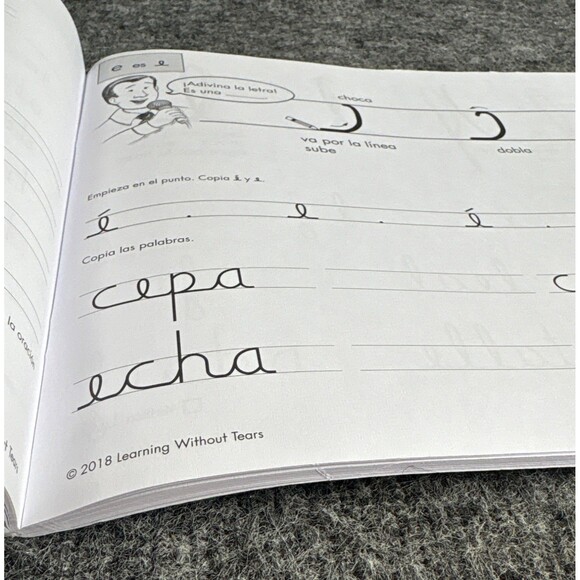 e es e
¡Adivina la letra!
Es una
choca
va por la línea
sube
dobla
Empieza en el punto. Copia é y e.
é . e . é .
Copia las palabras.
cepa c
echa
© 2018 Learning Without Tears
la oración
Tears